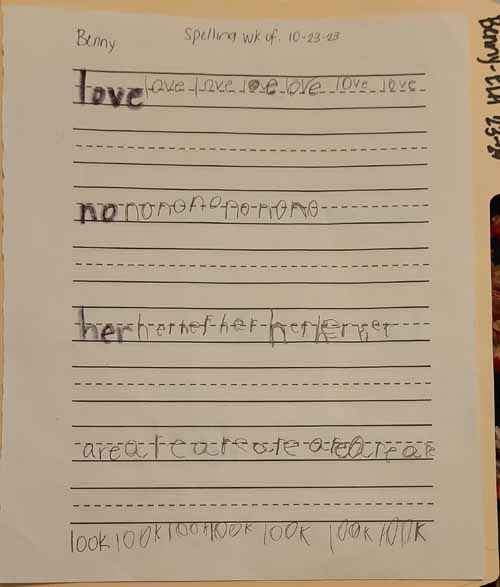 Benny Spelling wk of. 10-23-23
love love love love love love love
no no no no no no no no
her her her her her her her
are are are are are are are are
look look look look look look look